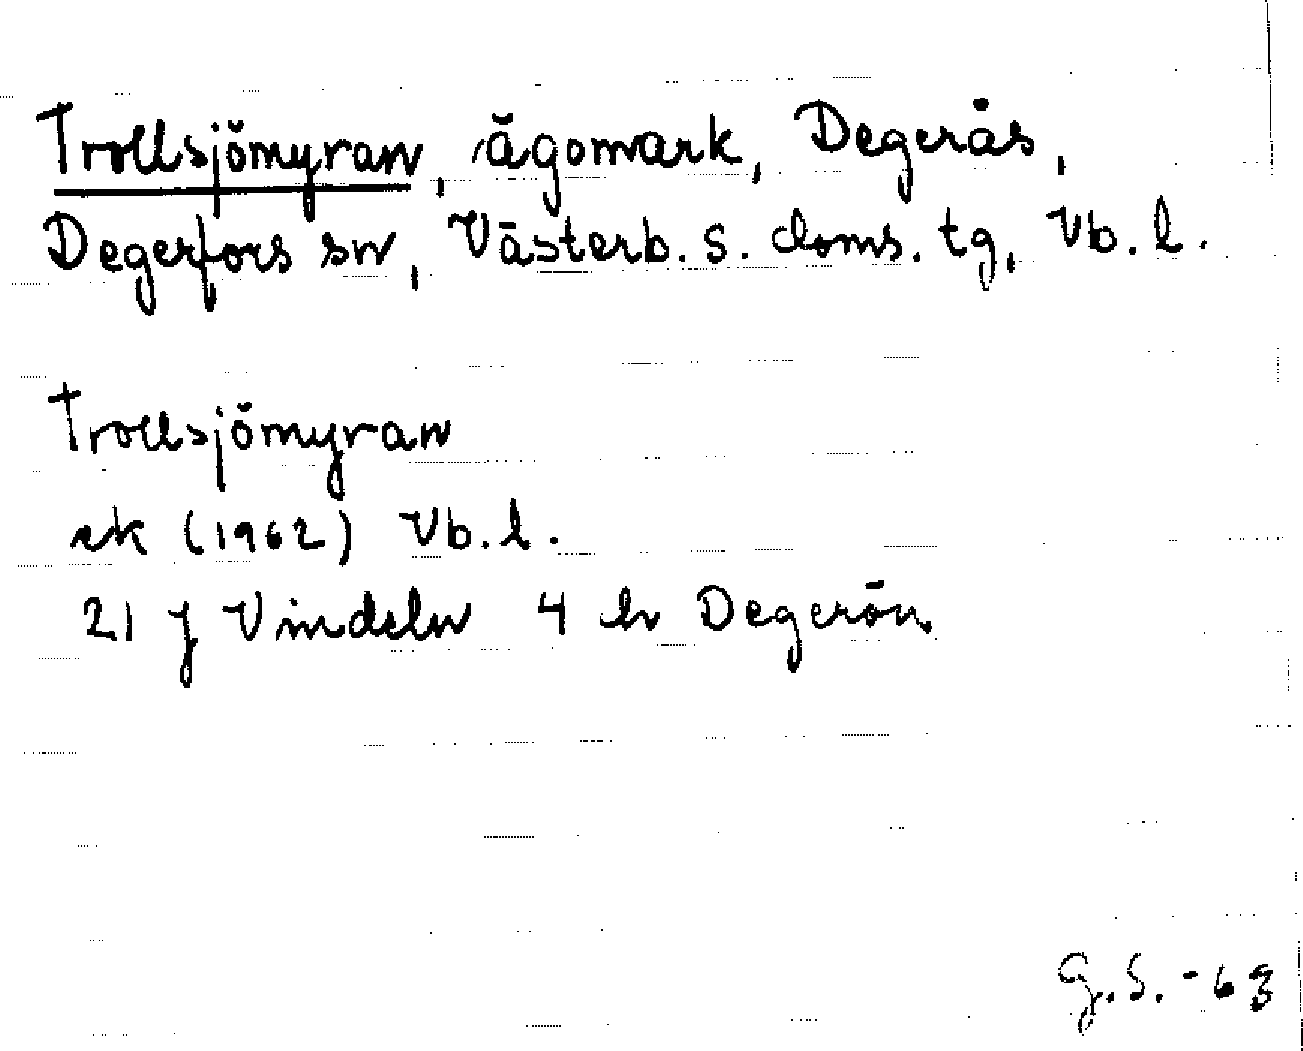 Trollsjömyran, ägomark, Degerås,
Degerfors sn, Västerb. s. doms. tg, Vb. l.
Trollsjömyran
ek (1962) Vb. l.
21 J Vindeln 4 h Degerön
G.S. -63